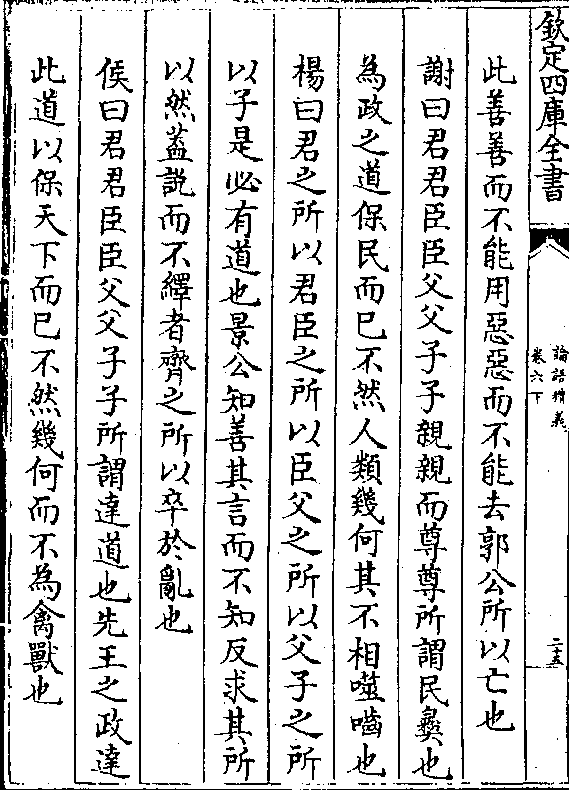 欽定四庫全書
論語精義
卷六下
二十五
此善善而不能用惡惡而不能去郭公所以亡也
謝曰君君臣臣父父子子親親而尊尊所謂民彞也
為政之道保民而已不然人類幾何其不相噬嚙也
楊曰君之所以君臣之所以臣父之所以父子之所
以子是必有道也景公知善其言而不知反求其所
以然葢説而不繹者齊之所以卒於亂也
侯曰君君臣臣父父子子所謂達道也先王之政達
此道以保天下而已不然幾何而不為禽獸也